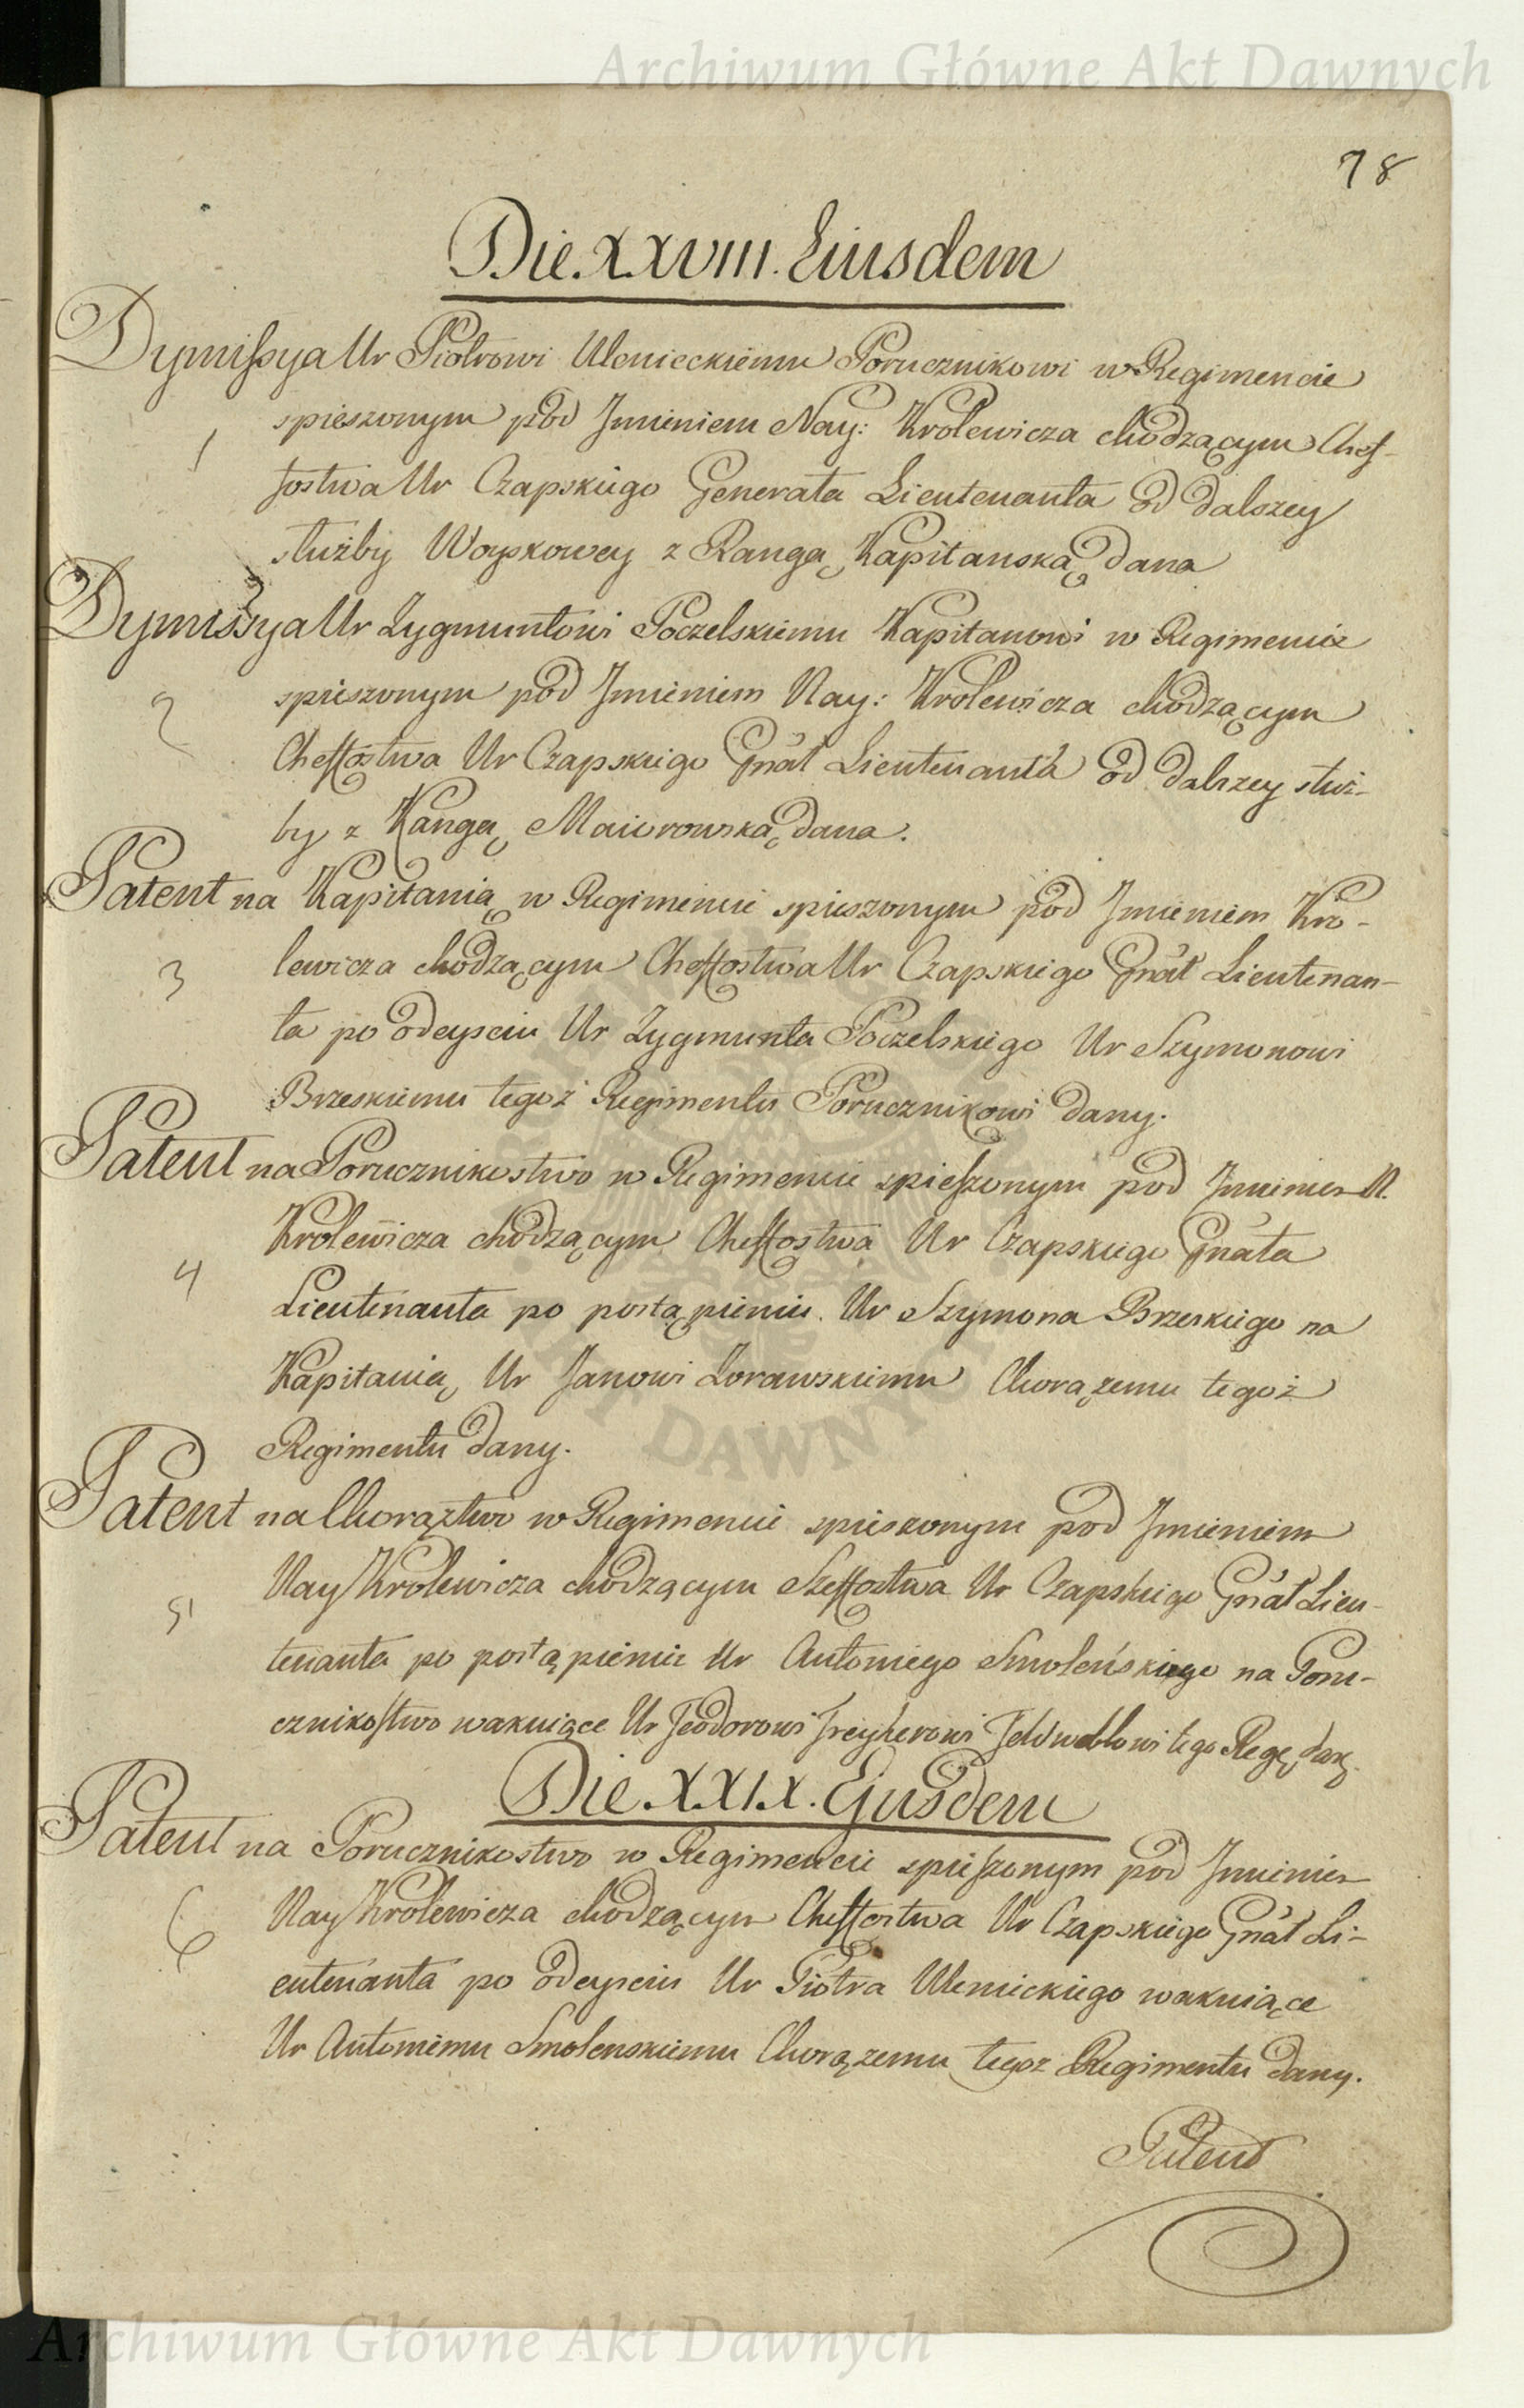 Archiwum Główne Akt Dawnych
78
Die. XXVIII. Eiusdem
Dymissya Ur Piotrowi Ulenieckiemu Porucznikowi w Regimencie
1
spieszonym pod Jmieniem Nay: Krolewicza chodzącym Chef-
fostwa Ur Czapskiego Generała Lieutenanta od dalszey
służby Woyskowey z Rangą Kapitanską dana
Dymissya Ur Zygmuntowi Poczelskiemu Kapitanowi w Regimencie
2
spieszonym pod Jmieniem Nay: Krolewicza chodzącym
Cheffostwa Ur Czapskiego Gnał Lieutenanta od dalszey służ-
by z Rangą Maiorowską dana.
Patent na Kapitanią w Regimencie spieszonym pod Jmieniem Kro-
3
lewicza chodzącym Cheffostwa Ur Czapskiego Gnał Lieutenan-
ta po odeysciu Ur Zygmunta Poczelskiego Ur Szymonowi
Brzeskiemu tegoż Regimentu Porucznikowi dany.
Patent na Porucznikostwo w Regimencie spieszonym pod Jmienien N.
4
Krolewicza chodzącym Cheffostwa Ur Czapskiego Gnała
Lieutenanta po postąpieniu Ur Szymona Brzeskiego na
Kapitanią Ur Janowi Zorawskiemu Chorązemu tegoż
Regimentu dany.
Patent na Chorąztwo w Regimencie spieszonym pod Jmieniem
5
Nay Krolewicza chodzącym Szeffostwa Ur Czapskiego Gnał Lieu-
tenanta po postąpieniu Ur Antoniego Smoleńskiego na Poru-
cznikostwo wakuiące Ur Teodorowi Freyherowi Feldweblowi tego Reg
Die. XXIX. Ejusdem
Patent na Porucznikostwo w Regimencie spieszonym pod Jmienien
6
Nay Krolewicza chodzącym Cheffostwa Ur Czapskiego Gnał Li-
eutenanta po odeysciu Ur Piotra Ulenieckiego wakuiące
Ur Antoniemu Smolenskiemu Chorązemu tegoz Regimentu dany.
Patent
Archiwum Główne Akt Dawnych